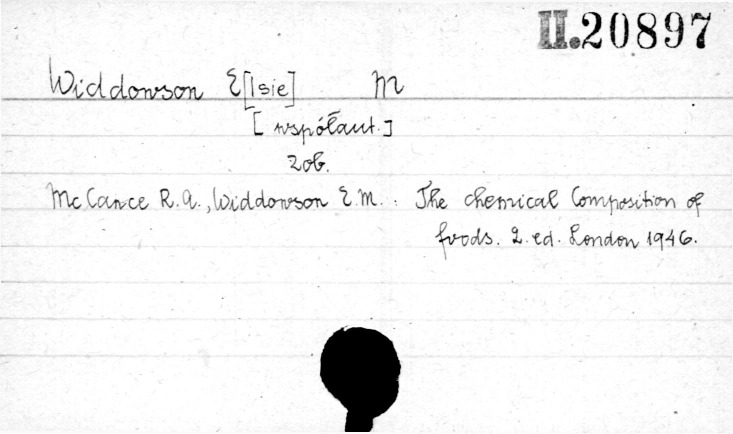 II.20897
Widdowson E[lsie] M
[współaut.]
zob.
Mc Cance R.A., Widdowson E.M. : The chemical Composition of
foods. 2. ed. London 1946.